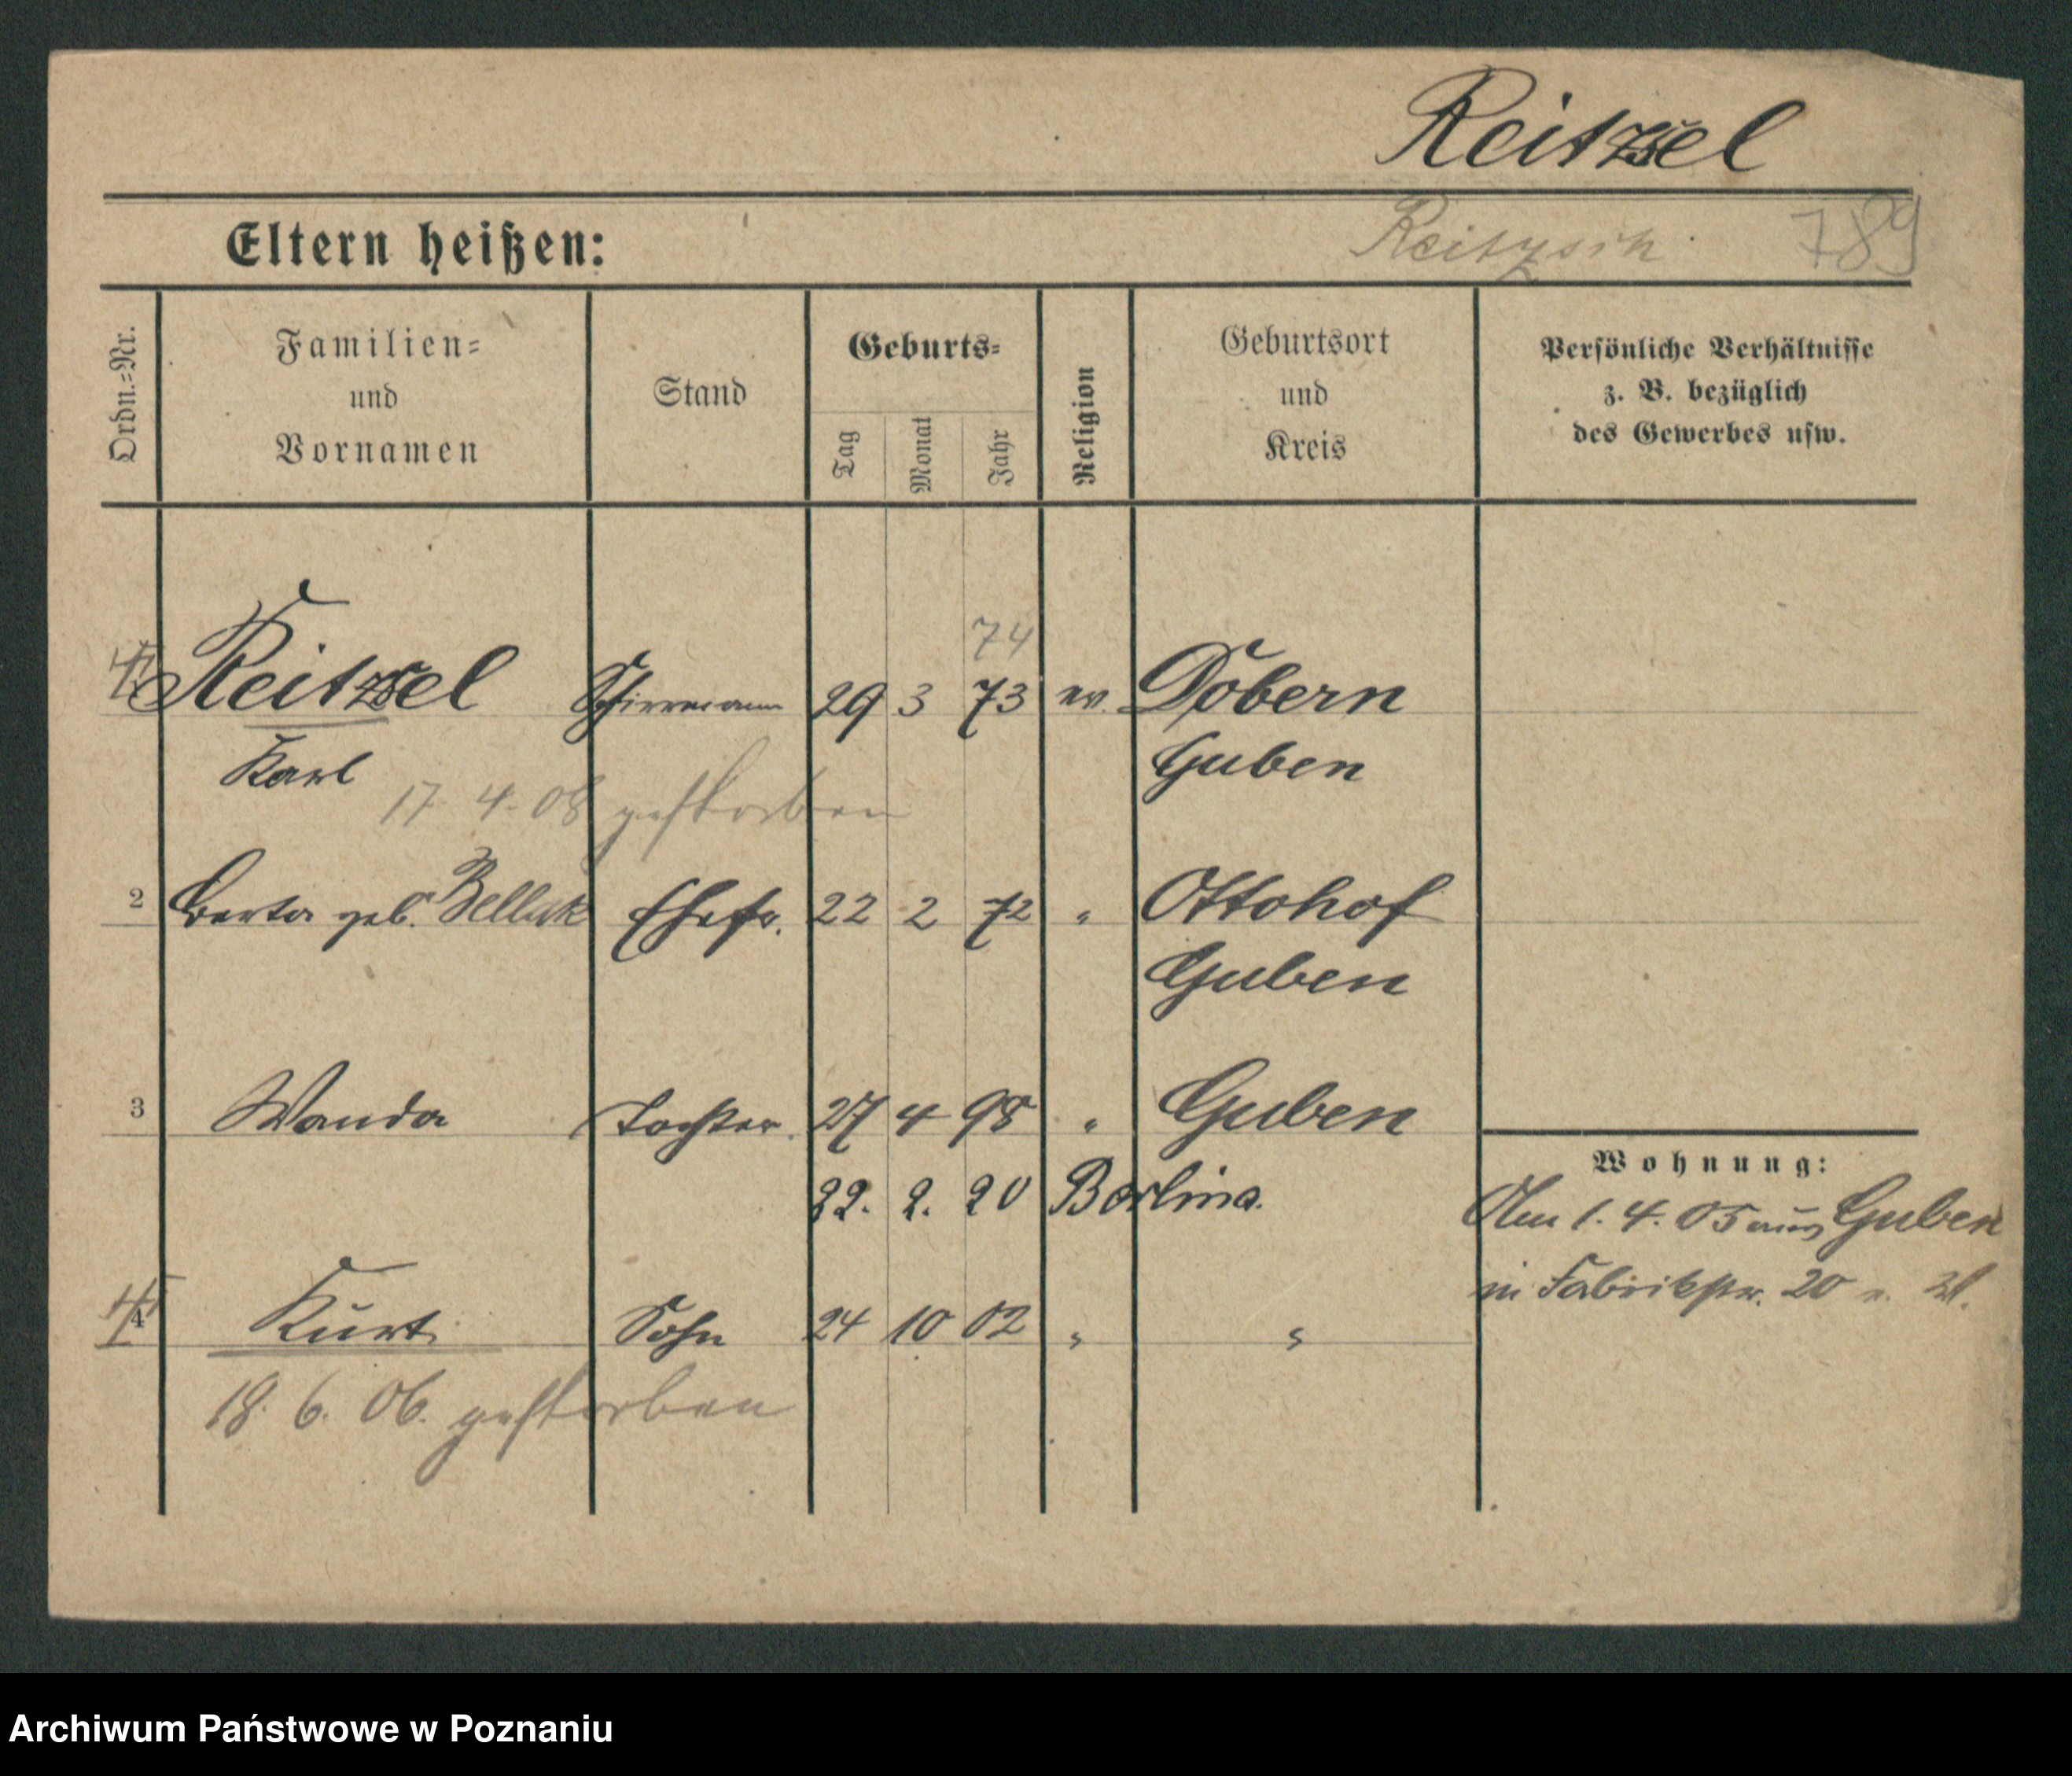 Reitzel
Eltern heißen:
789
Ordn.=Nr.
Familien=
und
Vornamen
Stand
Geburts=
Tag
Monat
Jahr
Religion
Geburtsort
und
Kreis
Persönliche Verhältnisse
z. B. bezüglich
des Gewerbes usw.
74
Reitzel 29 3 73 ev. Döbern
Karl Guben
17. 4. 08 gestorben
2 Berta geb. Ehefr. 22 2 72 " Ottohof
Guben
3 Wanda Tochter. 27 4 98 " Guben
22. 2. 20 Berlin
4 Kurt Sohn 24 10 02 " "
18. 6. 06. gestorben
Wohnung:
Am 1. 4. 05 aus Guben
in Fabrikstr. 20
Archiwum Państwowe w Poznaniu